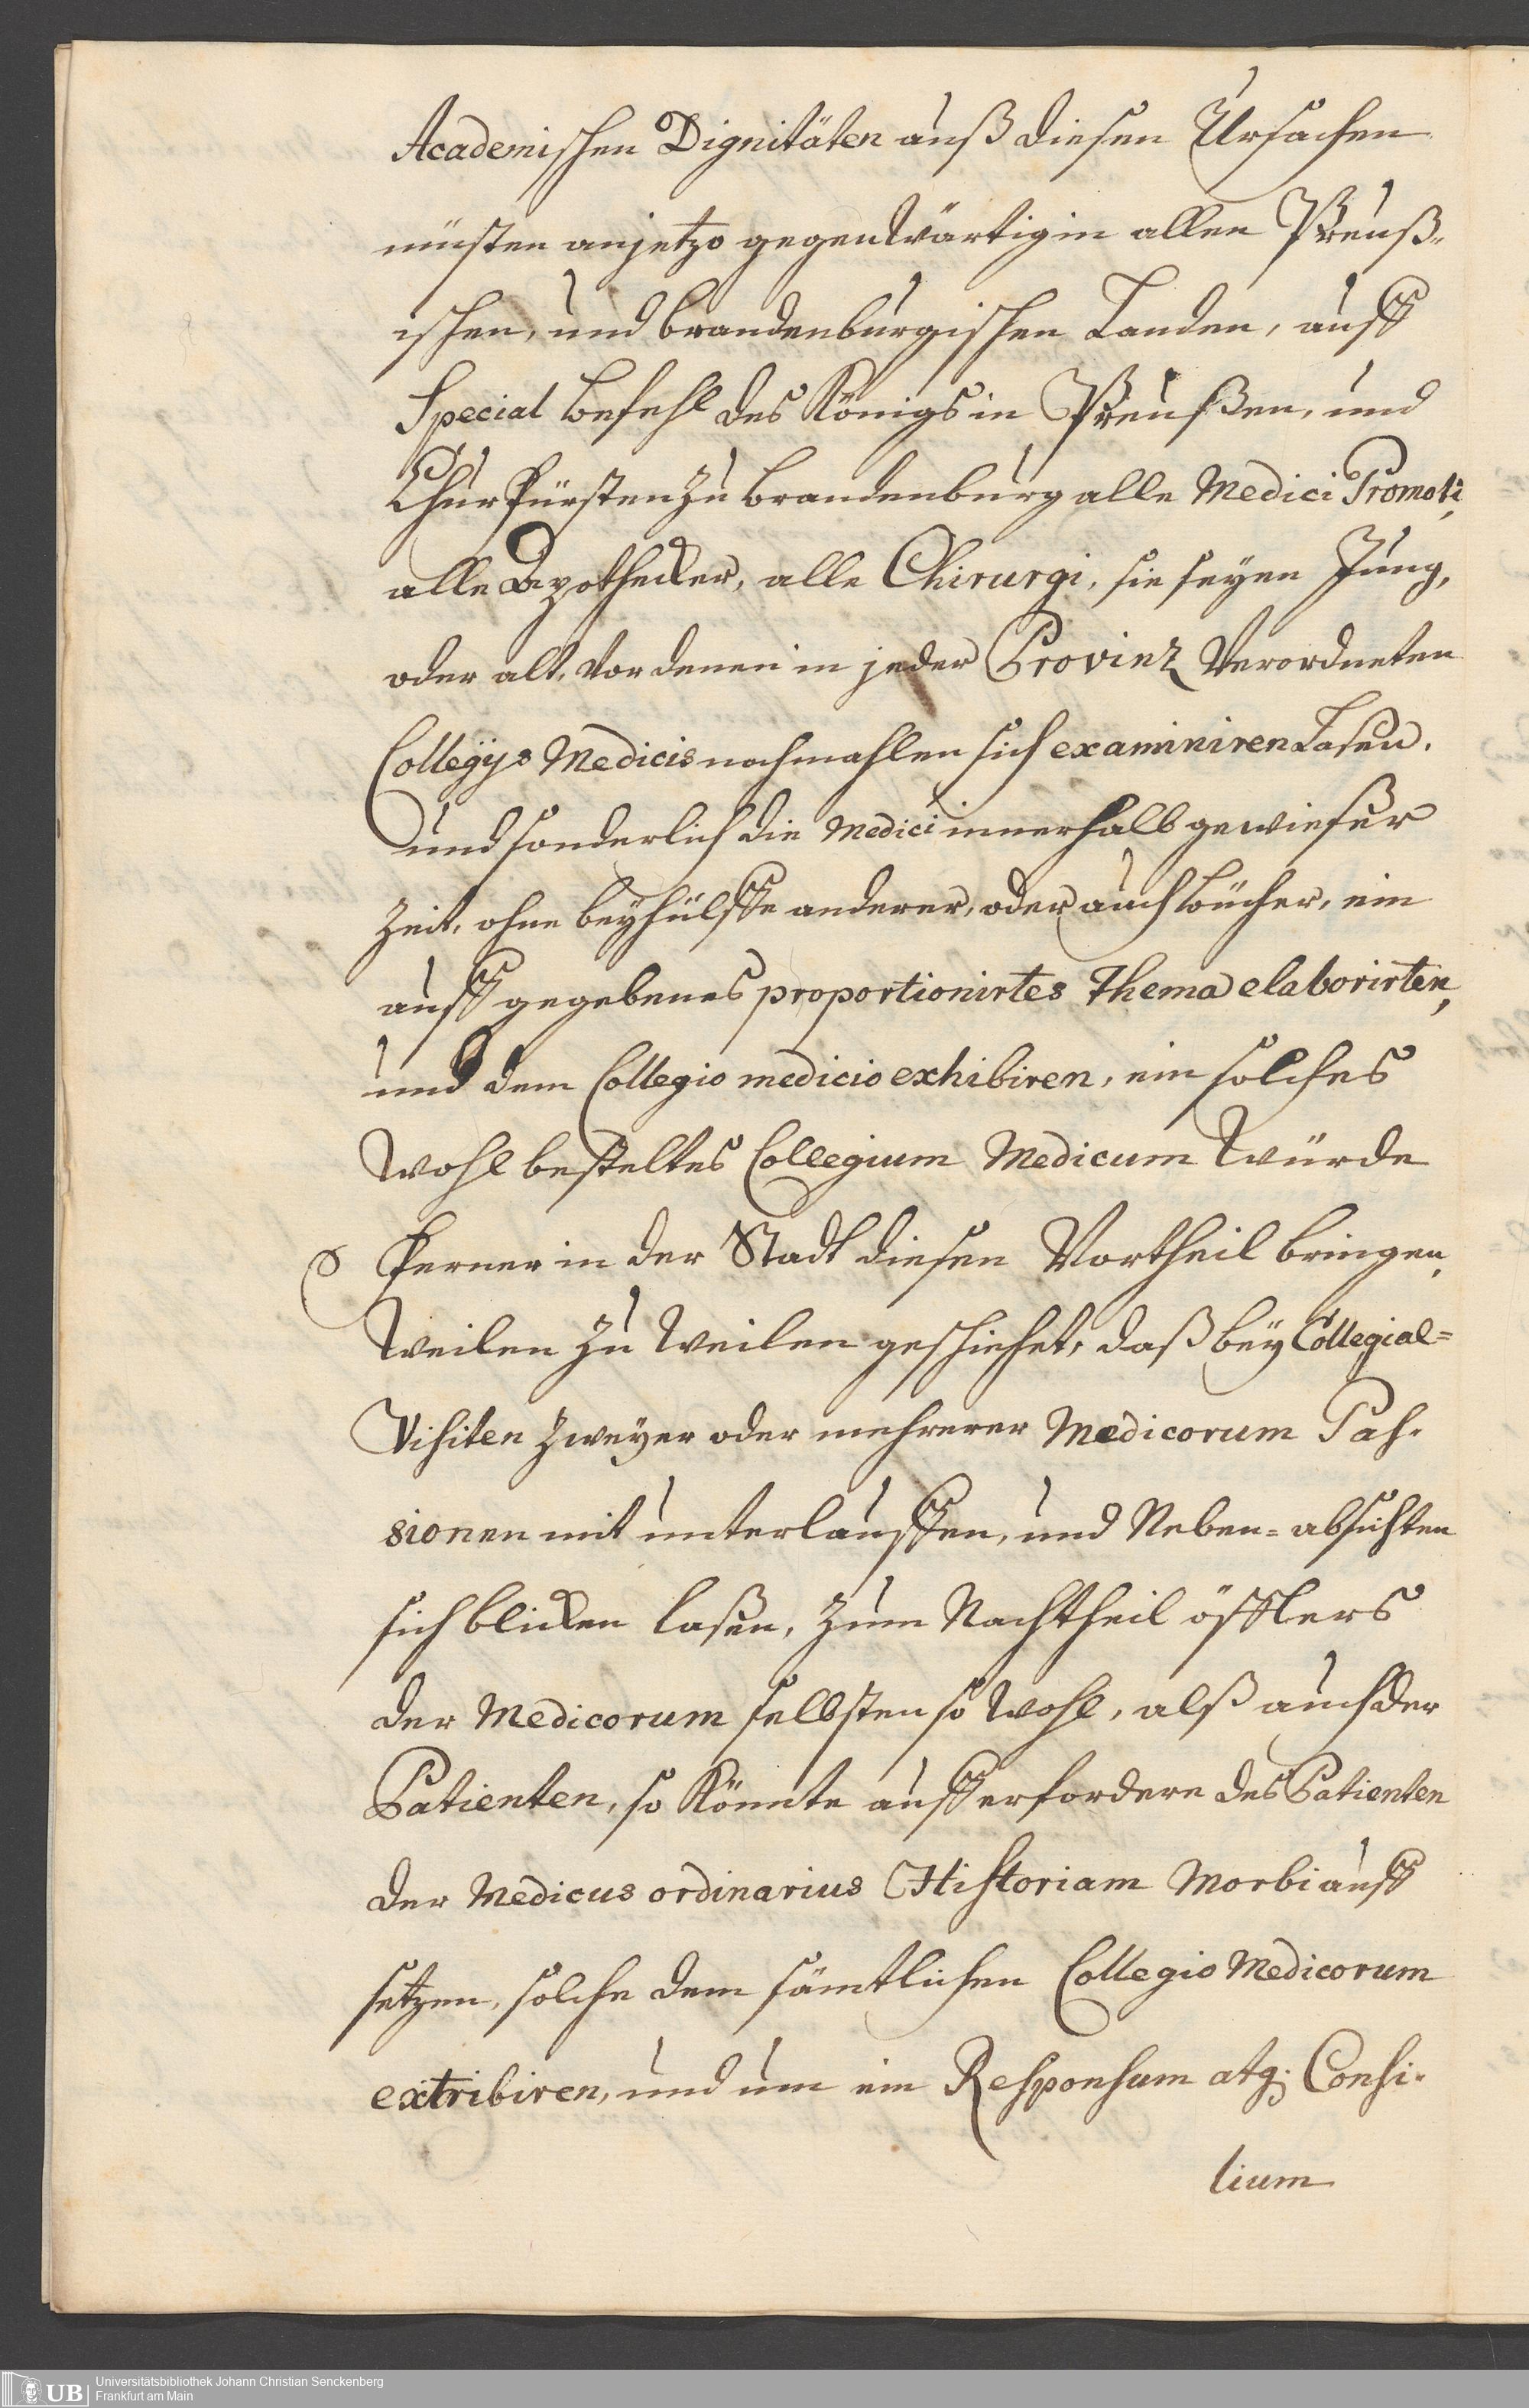 Academischen Dignitäten auß diesen Ursachen
müsten anjetzo gegenwärtig in allen Preuß-
ischen, und brandenburgischen Landen, auff
Special Befehl des Königs in Preußen, und
Churfürsten zu Brandenburg alle Medici Promoti,
alle Apothecker, alle Chirurgi, sie seyen Jung,
oder alt, vor denen in jeder Provinz Verordneten
Collegÿs Medicis nochmahlen sich examiniren Laßen.
und sonderlich die Medici innerhalb gewießer
Zeit, ohne beyhülffe anderer, oder auch bücher, ein
auff gegebenes proportionirtes Thema elaborirten,
und dem Collegio medicio exhibiren, ein solches
Wohl bestelltes Collegium Medicum Würde
Ferner in der Stadt diesen Vortheil bringen,
Weilen zu Weilen geschiehet, daß bey Collegial=
Visiten zweyer oder mehrerer Medicorum Pas-
sionen mit unterlauffen, und Neben=absichten
sich blicken laßen, zum Nachtheil öffters
der Medicorum selbsten so wohl, alß auch der
Patienten, so Könnte auff erfordern des Patienten
der Medicus ordinarius Historiam Morbi auff
setzen, solche dem sämtlichen Collegio Medicorum
extribiren, und um ein Responsum atq; Consi-
lium
Universitätsbibliothek Johann Christian Senckenberg
Frankfurt am Main
UB